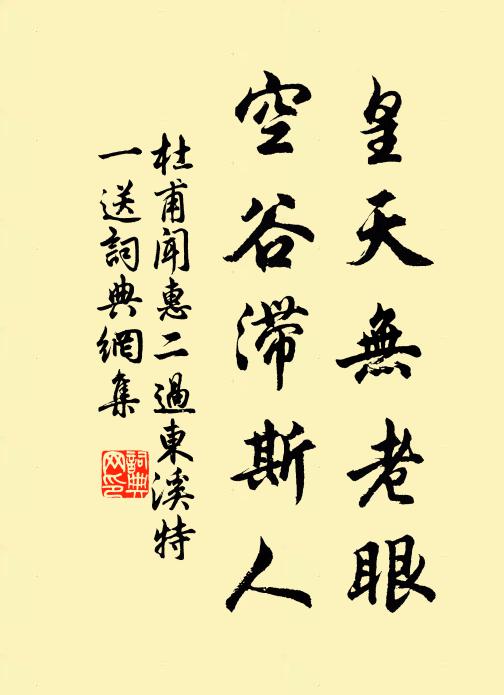 皇天無老眼
空谷滯斯人
杜甫聞惠二過東溪特
一送詞典網集
詞典
网印